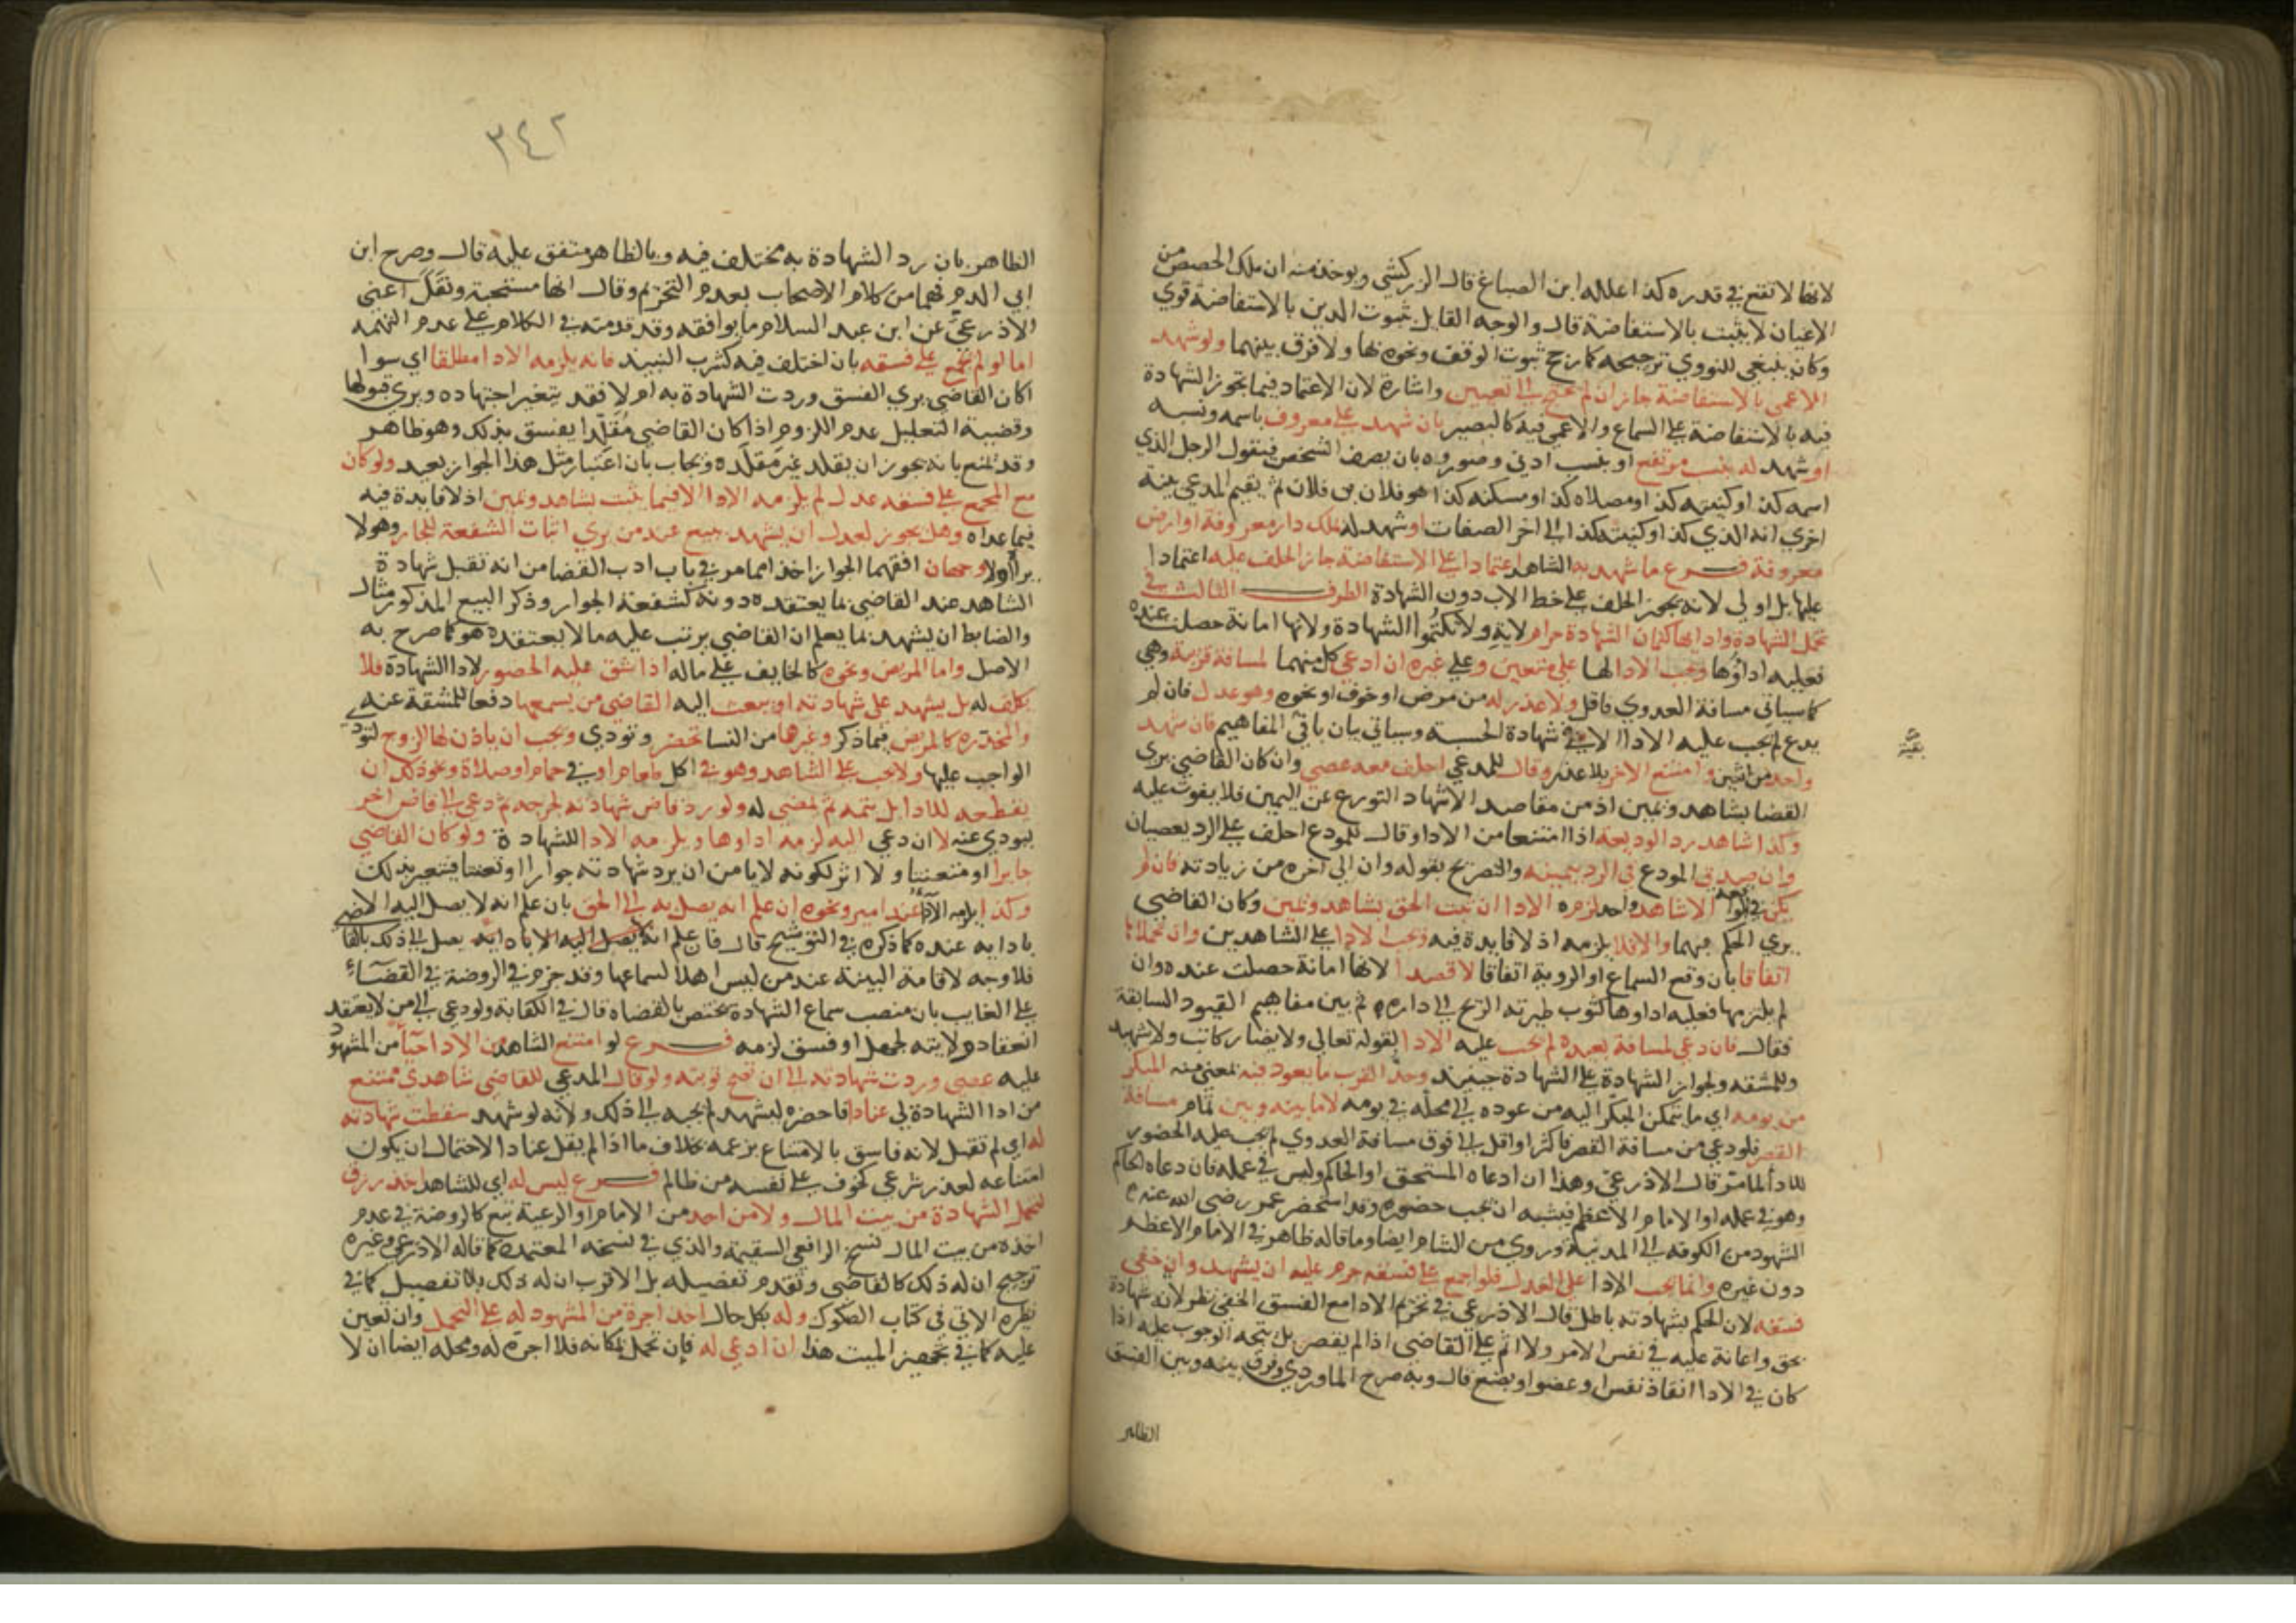 لانها لا تقع في قدره كذا علله ابن الصباغ قال الزركشي ويوخذ منه ان ملك الحصص من
الاعيان لا يثبت بالاستفاضة قال والوجه القايل بثبوت الدين بالاستفاضة قوي
وكان ينبغي للنووي ترجيحه كما رجح ثبوت الوقف ونحوه بها ولا فرق بينهما ولو شهد
الاعمى بالاستفاضة جاز ان لم يحتج الى تعيين واشارة لان الاعتماد فيما تجوز الشهادة
فيه بالاستفاضة على السماع والاعمى فيه كالبصير بان شهد على معروف باسمه ونسبه
او شهد له بنسب مرتفع او بنسب ادنى وصوروه بان يصف الشخص فيقول الرجل الذي
اسمه كذا وكنيته كذا ومصلاه كذا ومسكنه كذا هو فلان بن فلان ثم يقيم المدعي بينة
اخرى انه الذي اسمه كذا وكنيته كذا الى اخر الصفات او شهد له بملك دار معروفة او ارض
معروفة فرع ما شهد به الشاهد اعتمادا على الاستفاضة جاز الحلف عليه اعتمادا
عليها بل اولى لانه يجوز الحلف على خط الاب دون الشهادة الطرف الثالث في
تحمل الشهادة وادايها كتمان الشهادة حرام لاية ولا تكتموا الشهادة ولانها امانة حصلت عنده
فعليه اداؤها ويجب الادا لها على متعين وعلى غيره ان ادعى كل منهما لمسافة قريبة وهي
كما سياتي مسافة العدوى فاقل ولا عذر له من مرض او خوف او نحوه وهو عدل فان لم
يدع لم يجب عليه الادا الا في شهادة الحسبة وسياتي بيان باقي المفاهيم فان شهد
واحد من اثنين وامتنع الاخر بلا عذر وقال للمدعي احلف معه عصى وان كان القاضي يرى
القضا بشاهد ويمين اذ من مقاصد الاشهاد التورع عن اليمين فلا يفوت عليه
وكذا شاهد رد الوديعة اذا امتنعا من الادا وقال للمودع احلف على الرد يعصيان
وان صدق المودع في الرد بيمينه والتصريح بقوله وان الى اخره من زيادته فان لم
يكن في الواقعة الا شاهد واحد لزمه الادا ان ثبت الحق بشاهد ويمين وكان القاضي
يرى الحكم بهما والا فلا يلزمه اذ لا فايدة فيه ويجب الادا على الشاهدين وان تحملاها
اتفاقا بان وقع السماع او الروية اتفاقا لا قصدا لانها امانة حصلت عنده وان
لم يلتزمها فعليه اداوها كثوب طيرته الريح الى داره ثم بين مفاهيم القيود السابقة
فقال فان دعي لمسافة بعيدة لم يجب عليه الادا لقوله تعالى ولا يضار كاتب ولا شهيد
وللمشقة ولجواز الشهادة على الشهادة حينئذ وحد القرب ما يعود فيه بمعنى منه المبكر
من يومه اي ما يتمكن المبكر اليه من عوده الى محله في يومه لا ما بينه وبين تمام مسافة
القصر فلو دعي من مسافة القصر فاكثر او اقل الى فوق مسافة العدوى لم يجب عليه الحضور
للادا لما مر قال الاذرعي وهذا ان دعاه المستحق او الحاكم وليس في عمله فان دعاه الحاكم
وهو في عمله او الامام الاعظم فيشبه ان يجب حضوره وقد استحضر عمر رضي الله عنه
الشهود من الكوفة الى المدينة وروي من الشام ايضا وما قاله ظاهر في الامام الاعظم
دون غيره وانما يجب الادا على العدل فلو اجمع على فسقه حرم عليه ان يشهد وان خفي
فسقه لان الحكم بشهادته باطل قال الاذرعي في تحريم الادا مع الفسق الخفي نظر لانه شهادة
بحق واعانة عليه في نفس الامر ولا اثم على القاضي اذا لم يقصر بل يتجه الوجوب عليه اذا
كان في الادا انقاذ نفس او عضو او بضع قال وبه صرح الماوردي وفرق بينه وبين الفسق
الظاهر
٣٤٢
الظاهر بان رد الشهادة به مختلف فيه وبالظاهر متفق عليه قال وصرح ابن
ابي الدم فهما من كلام الاصحاب بعدم التحريم وقال انها مستحبة ونقل اعني
الاذرعي عن ابن عبد السلام ما يوافقه وقد قدمته في الكلام على عدم التهمة
اما لو لم يجمع على فسقه بان اختلف فيه كشرب النبيذ فانه يلزمه الادا مطلقا اي سوا
اكان القاضي يرى الفسق وردت الشهادة به ام لا فقد يتغير اجتهاده ويرى قبولها
وقضية التعليل عدم اللزوم اذا كان القاضي مقلدا يفسق بذلك وهو ظاهر
وقد يمنع بانه يجوز ان يقلد غير مقلده ويجاب بان اعتبار مثل هذا الجواز بعيد ولو كان
مع المجمع على فسقه عدل لم يلزمه الادا الا فيما يثبت بشاهد ويمين اذ لا فايدة فيه
فيما عداه وهل يجوز لعدل ان يشهد ببيع عند من يرى اثبات الشفعة للجار وهو لا
يراه او لا وجهان افقههما الجواز اخذا مما مر في باب ادب القضا من انه تقبل شهادة
الشاهد عند القاضي بما يعتقده دونه كشفعة الجوار وذكر البيع المذكور مثال
والضابط ان يشهد بما يعلم ان القاضي يرتب عليه ما لا يعتقده هو كما صرح به
الاصل واما المريض ونحوه كالخايف على ماله اذا شق عليه الحضور لادا الشهادة فلا
يكلف له بل يشهد على شهادته او يبعث اليه القاضي من يسمعها دفعا للمشقة عنه
والمخدرة كالمريض فيما ذكر وغيرها من النسا تحضر وتودي ويجب ان ياذن لها الزوج لتودي
الواجب عليها ولا يجب على الشاهد وهو في اكل طعام او في حمام او صلاة ونحو ذلك ان
يقطعه للادا بل يتمه ثم يمضي له ولو رد قاض شهادته لجرحه ثم دعي الى قاض اخر
ليودي عنه لا ان دعي اليه لزمه اداوها ويلزمه الادا للشهادة ولو كان القاضي
جايرا او متعنتا ولا اثر لكونه لا يامن ان يرد شهادته جوارا او تعنتا فيتعير بذلك
وكذا يلزمه الادا عند امير ونحوه ان علم انه يصل به الى الحق بان علم انه لا يصل اليه الا
بادايه عنده كما ذكره في التوشيح قال فان علم انه يصل الى ذلك بالقاضي
فلا وجه لاقامة البينة عند من ليس اهلا لسماعها وقد جزم في الروضة في القضاء
على الغايب بان منصب سماع الشهادة يختص بالقضاه قال في الكفاية ولو دعي الى من لا يعتقد
انعقاد ولايته لجهل او فسق لزمه فرع لو امتنع الشاهد من الادا حياء من المشهود
عليه عصى وردت شهادته الى ان تصح توبته ولو قال المدعي للقاضي شاهدي ممتنع
من ادا الشهادة لي عنادا فاحضره ليشهد لم يجبه الى ذلك ولانه لو شهد سقطت شهادته
له اي لم تقبل لانه فاسق بالامتناع بزعمه بخلاف ما اذا لم يقل عنادا لاحتمال ان يكون
امتناعه لعذر شرعي كخوف على نفسه من ظالم فرع ليس له اي للشاهد اخذ رزق
لتحمل الشهادة من بيت المال ولا من احد من الامام او الرعية تبع كالروضة في عدم
اخذه من بيت المال نسخ الرافعي السقيمة والذي في نسخه المعتمدة كما قاله الاذرعي وغيره
ترجيح ان له ذلك كالقاضي وتقدم تفصيله بل الاقرب ان له ذلك بلا تفصيل كما في
نظيره الاتي في كتاب الصكوك وله بكل حال اخذ اجرة من المشهود له على التحمل وان تعين
عليه كما في تجهيز الميت هذا ان ادعي له فان تحمل بمكانه فلا اجرة له ومحله ايضا ان لا